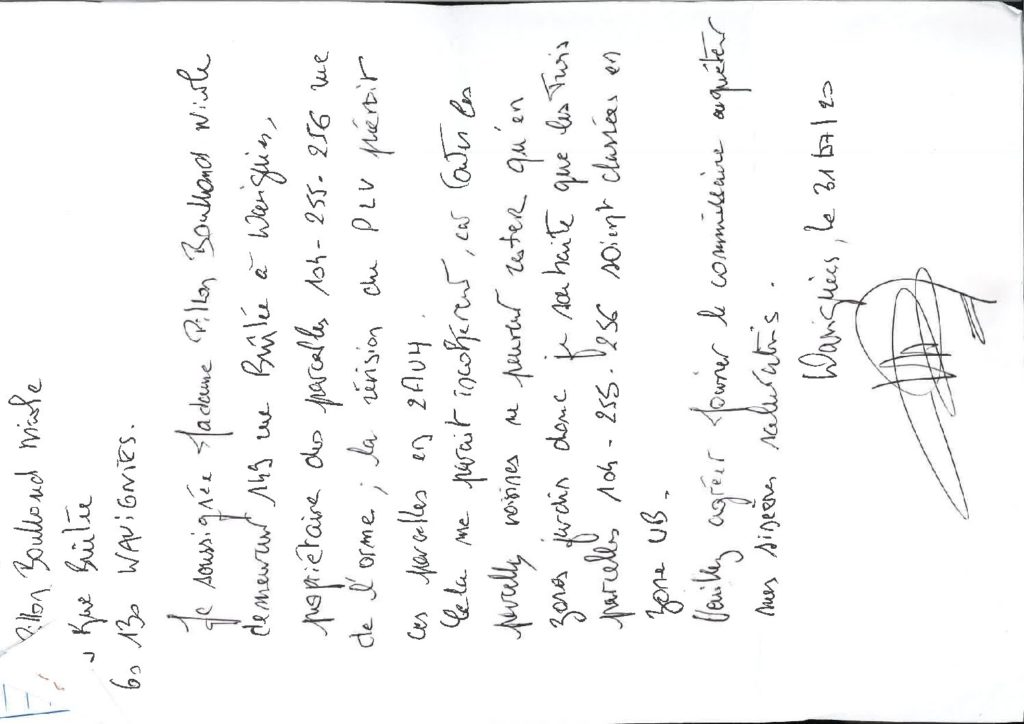 Pillon Boulhand Nicole
Rue Brûlée
60 130 WAVIGNIES.
Je soussignée Madame Pillon Boulhand Nicole
demeurant 149 rue Brûlée à Wavignies,
propriétaire des parcelles 104 - 255 - 256 rue
de l'orme ; la révision du PLU prévoit
ces parcelles en 2AUH.
Cela me parait incohérent, car toutes les
parcelles voisines ne peuvent rester qu'en
zones jardin donc je souhaite que les trois
parcelles 104 - 255 - 256 soient classées en
zone UB.
Veuillez agréer Monsieur le commissaire enquêteur
mes sincères salutations.
Wavignies, le 31/07/20